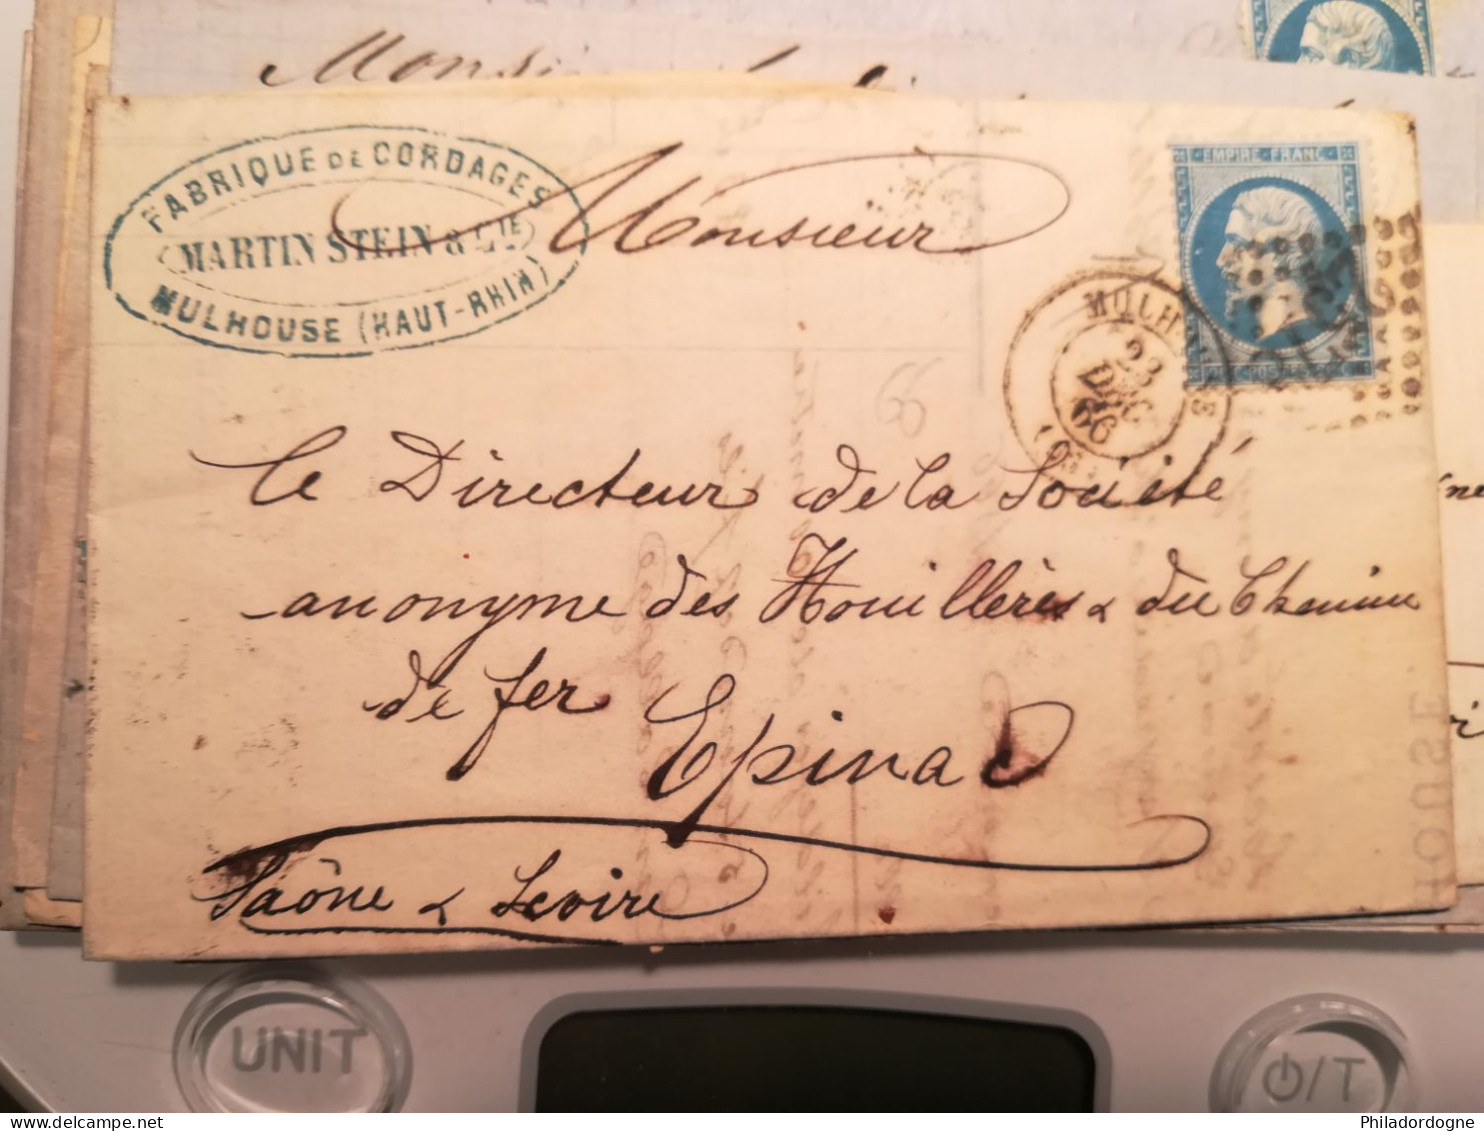 FABRIQUE DE CORDAGES
MARTIN STEIN & CIE
MULHOUSE (HAUT-RHIN)
Monsieur
EMPIRE FRANC
MULHOUSE
23
DEC
66
66
le Directeur de la Société
anonyme des Houillères & du Chemin
de fer Epinac
Saône & Loire
HOUSE
UNIT
/T
© Philadordogne